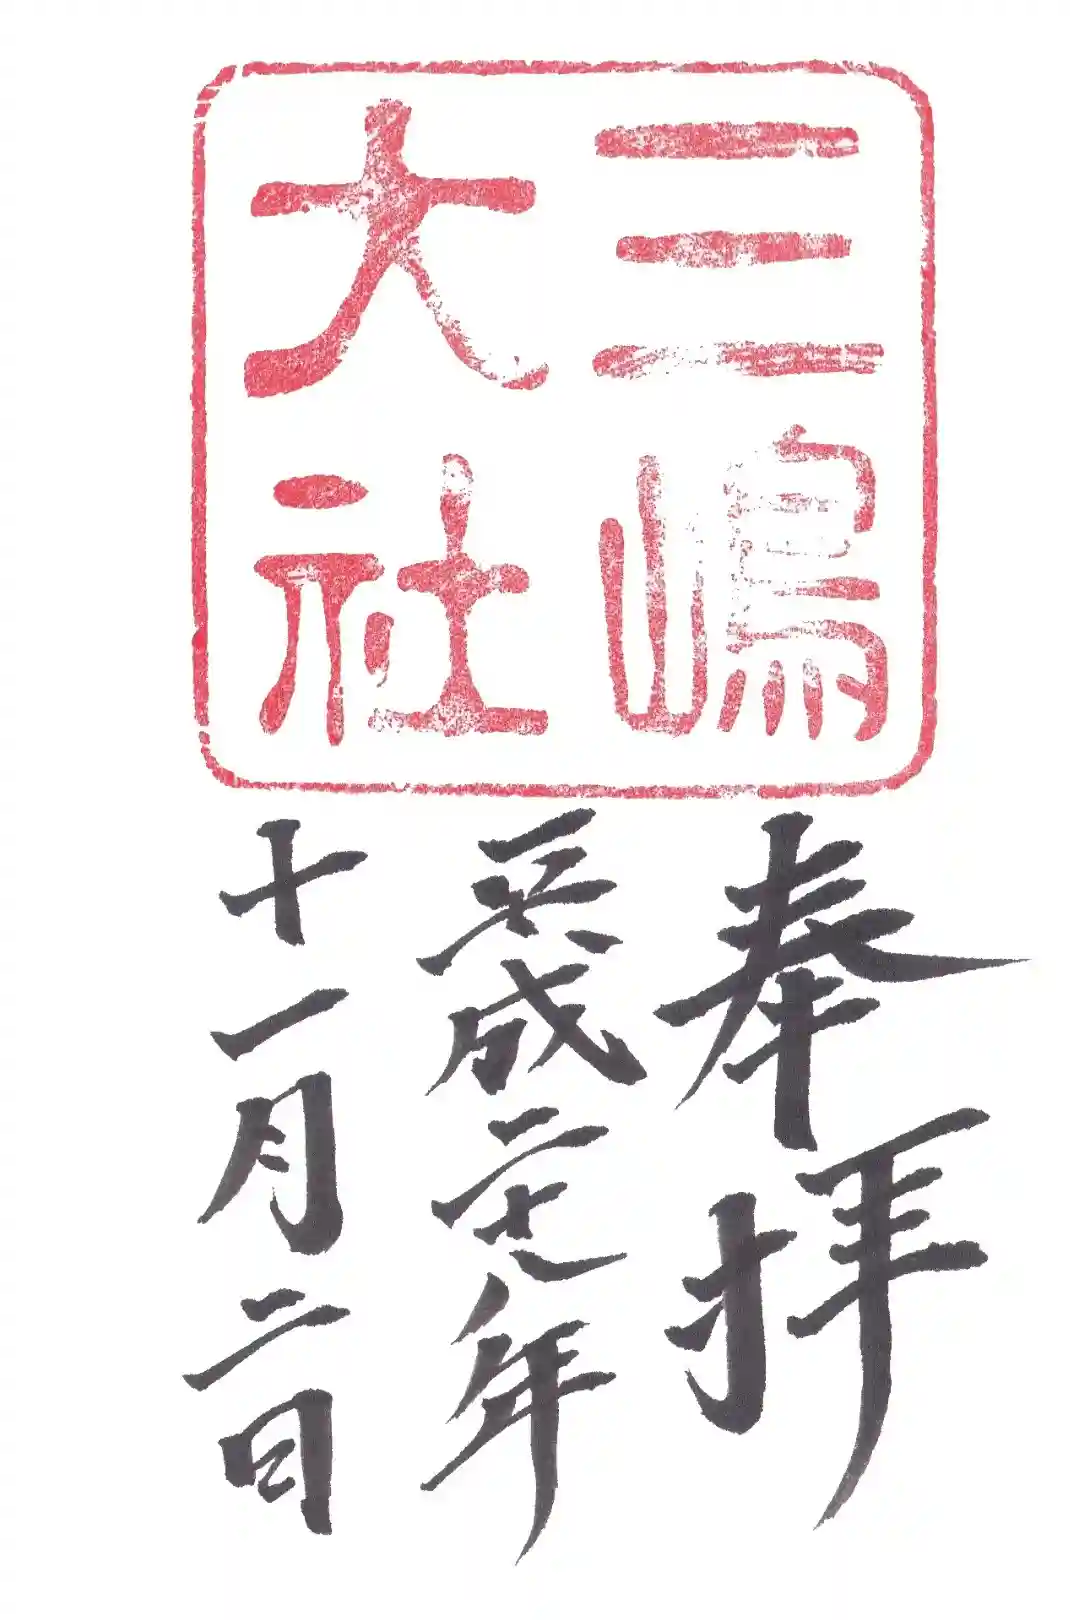 三嶋
大社
奉拝
平成二十七年
十一月二日